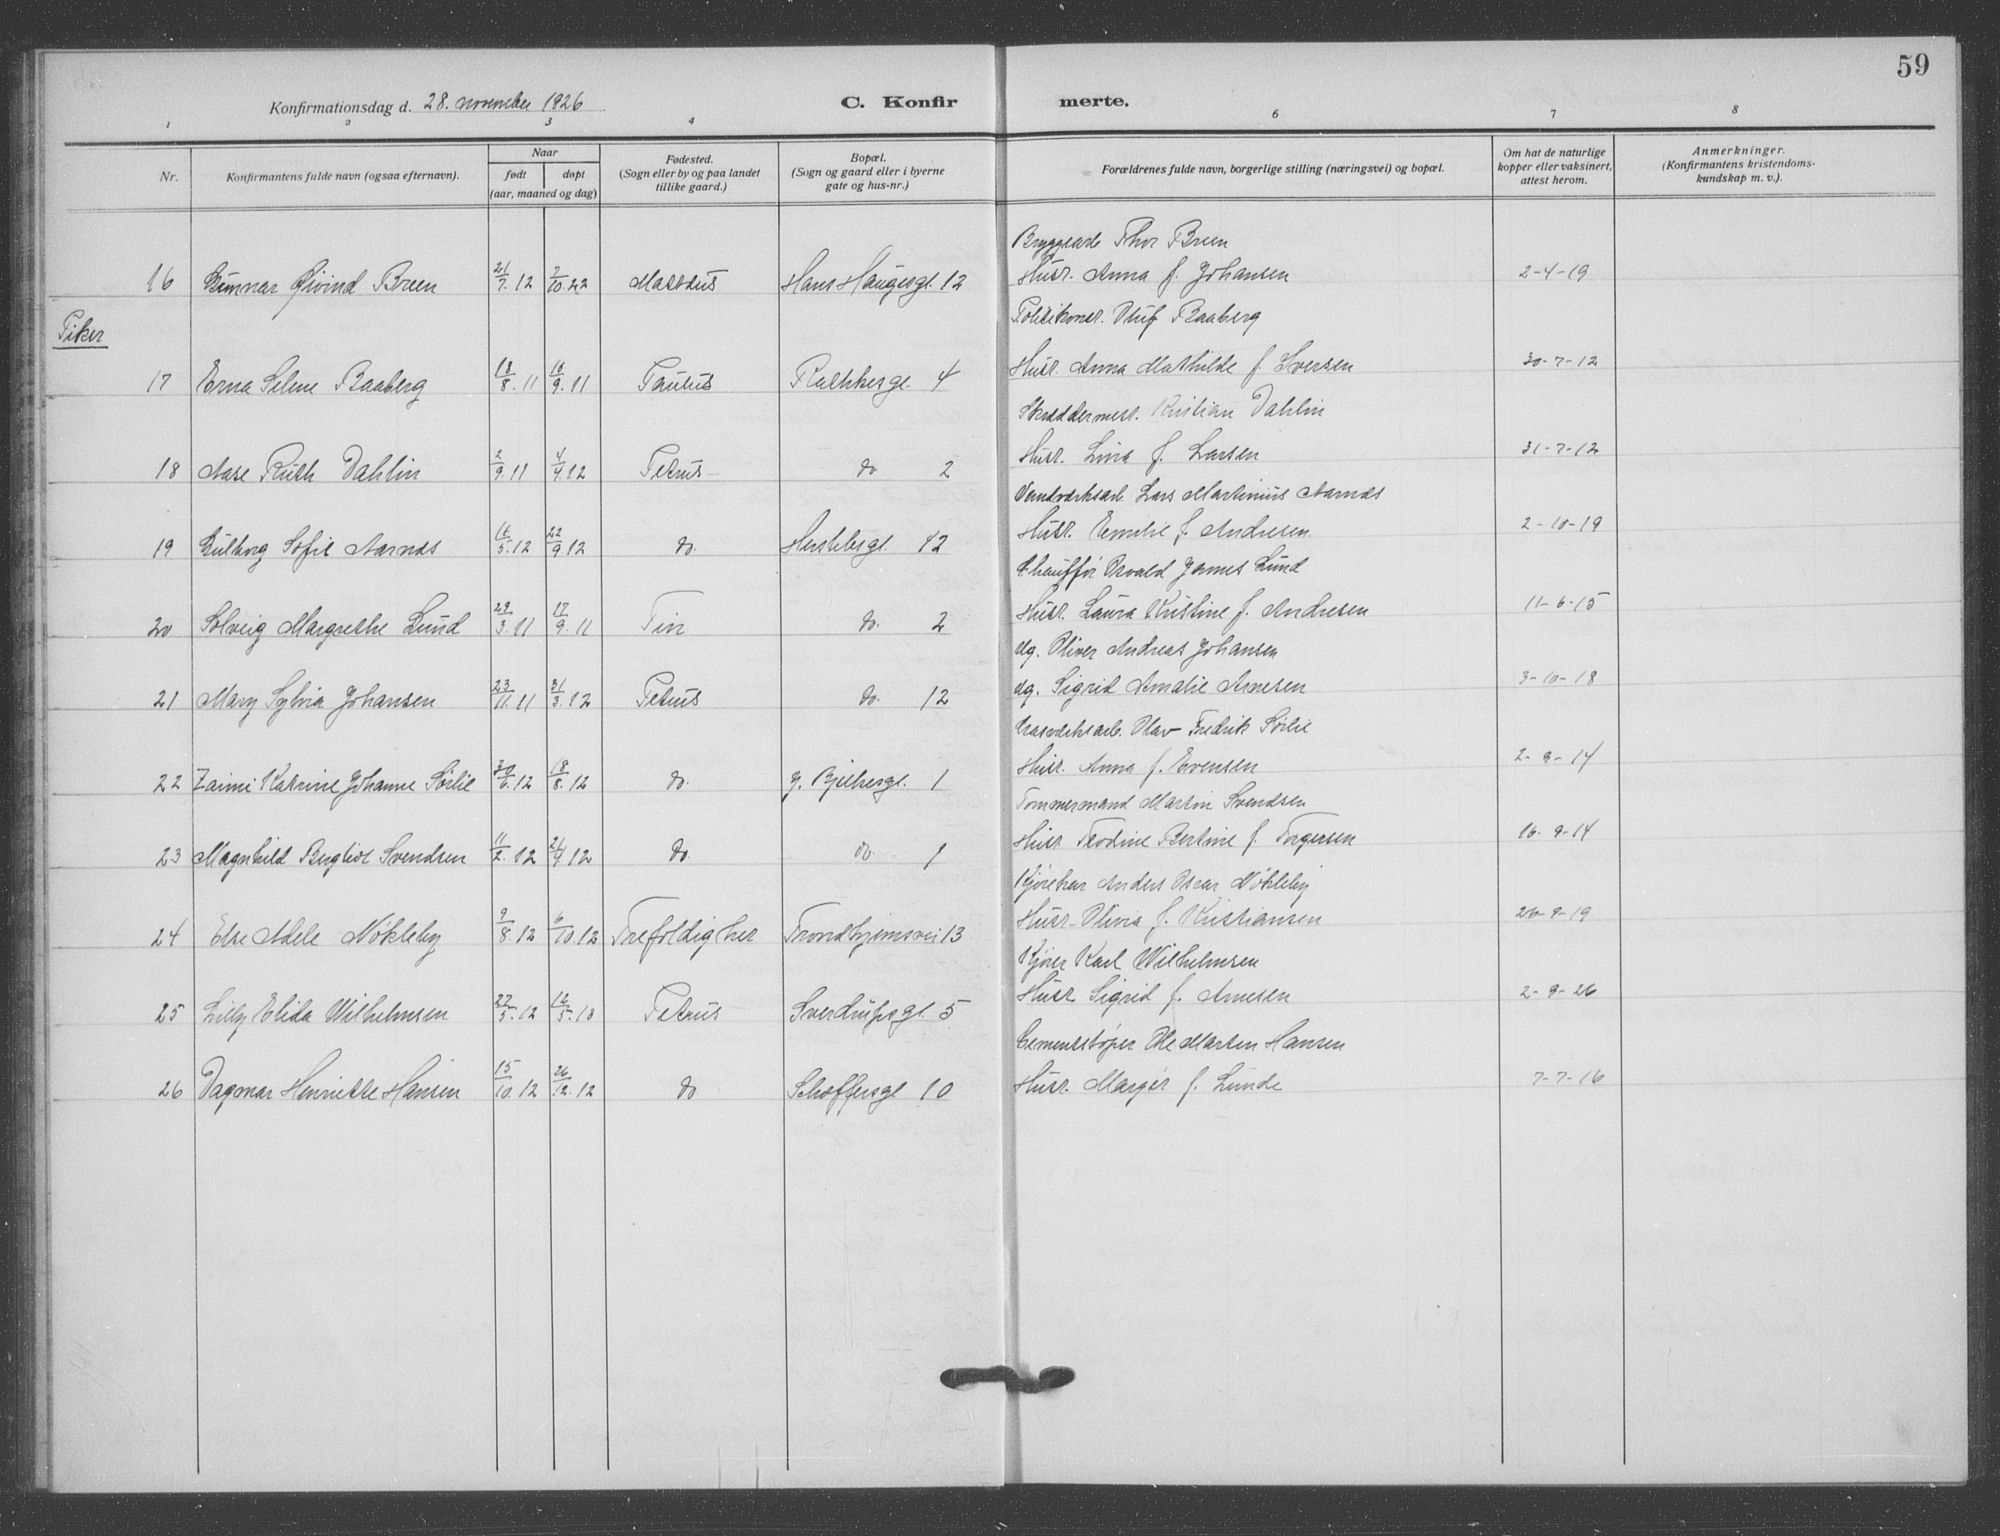 59
Konfirmationsdag d. 28. november 1926 C. Konfir merte.
1 2 3 4 6 7 8
Nr. Konfirmantens fulde navn (ogsaa efternavn). Naar født døpt (aar, maaned og dag) Fødested. (Sogn eller by og paa landet tillike gaard.) Bopæl. (Sogn og gaard eller i byerne gate og hus-nr.) Forældrenes fulde navn, borgerlige stilling (næringsvei) og bopæl. Om hat de naturlige kopper eller vaksinert, attest herom. Anmerkninger. (Konfirmantens kristendoms-kundskap m. v.).
Thor Breen
16 Gunnar Øivind Breen 21/7.12 Hans Haugesgt. 12 Husr. Anna f. Johansen 2-4-19
Piker
Politikonst. Oluf Baaberg
17 Erna Selene Baaberg 18/8.11 10/9.11 Paulus 4 Husr. Anna Mathilde f. Iversen 30-7-12
Skræddermest. Kristian Dahlin
18 Aase Ruth Dahlin 2/9.11 4/4.12 Petrus do 2 Husr. Lina f. Larsen 31-7-12
Lars Martinius Aarnes
19 Gulborg Sofie Aarnes 16/5.12 22/9.12 do. Herslebsgt. 12 Husr. Emilie f. Andresen 2-10-19
Chauffør Osvald James Lund
20 Solveig Margrethe Lund 29/3.11 17/9.11 do. 2 Husr. Laura Kristine f. Andresen 11-6-15
dg. Oliver Andreas Johansen
21 Mary Sylvia Johansen 23/11.11 31/3.12 Petrus do. 12 dg. Sigrid Amalie Arnesen 3-10-18
Olav Fredrik Sørlie
22 Katrine Johanne Sørlie 30/6.12 18/8.12 do. 1 Husr. Anna f. Evensen 2-9-14
Tømmermand Martin Svendsen
23 Magnhild Svendsen 11/2.12 21/4.12 do do. 1 Husr. Bertine f. Torgersen 16-9-14
Kjørekar Anders Oscar Nøkleby
24 Else Adele Nøkleby 9/8.12 6/10.12 Trefoldighet Trondhjemsvei 13 Husr. Olivia f. Kristiansen 26-9-19
Kjører Karl Wilhelmsen
25 Lilly Elida Wilhelmsen 27/5.12 12/5.13 Petrus Sverdrupsgt. 5 Husr. Sigrid f. Arnesen 2-9-26
Cementstøper Ole Martin Hansen
26 Dagmar Henriette Hansen 15/10.12 26/12.12 do Schøffersgt 10 Husr. Margit f. Lunde 7-7-16